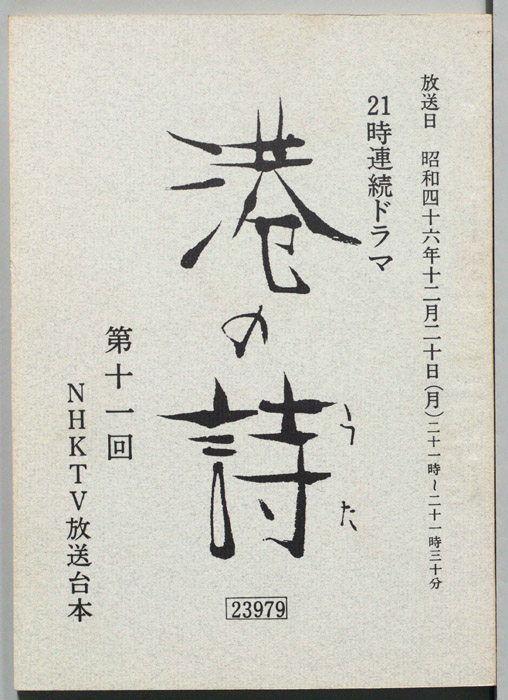 放送日　昭和四十六年十二月二十日（月）二十一時～二十一時三十分
21時連続ドラマ
港の詩
うた
第十一回
NHKTV放送台本
23979